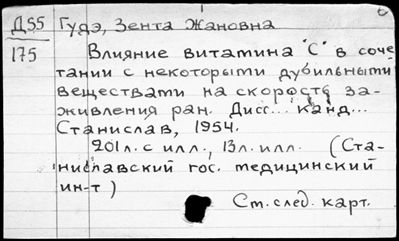 Д55 Гудэ, Зента Жановна
175 Влияние витамина "С" в соче-
тании с некоторыми дубильными
веществами на скорость за-
живления ран. Дисс... канд...
Станислав, 1954.
201л. с илл., 13л. илл. (Ста-
ниславский гос. медицинский
ин-т)
См. след. карт.